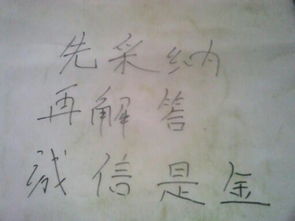 先采纳
再解答
诚信是金